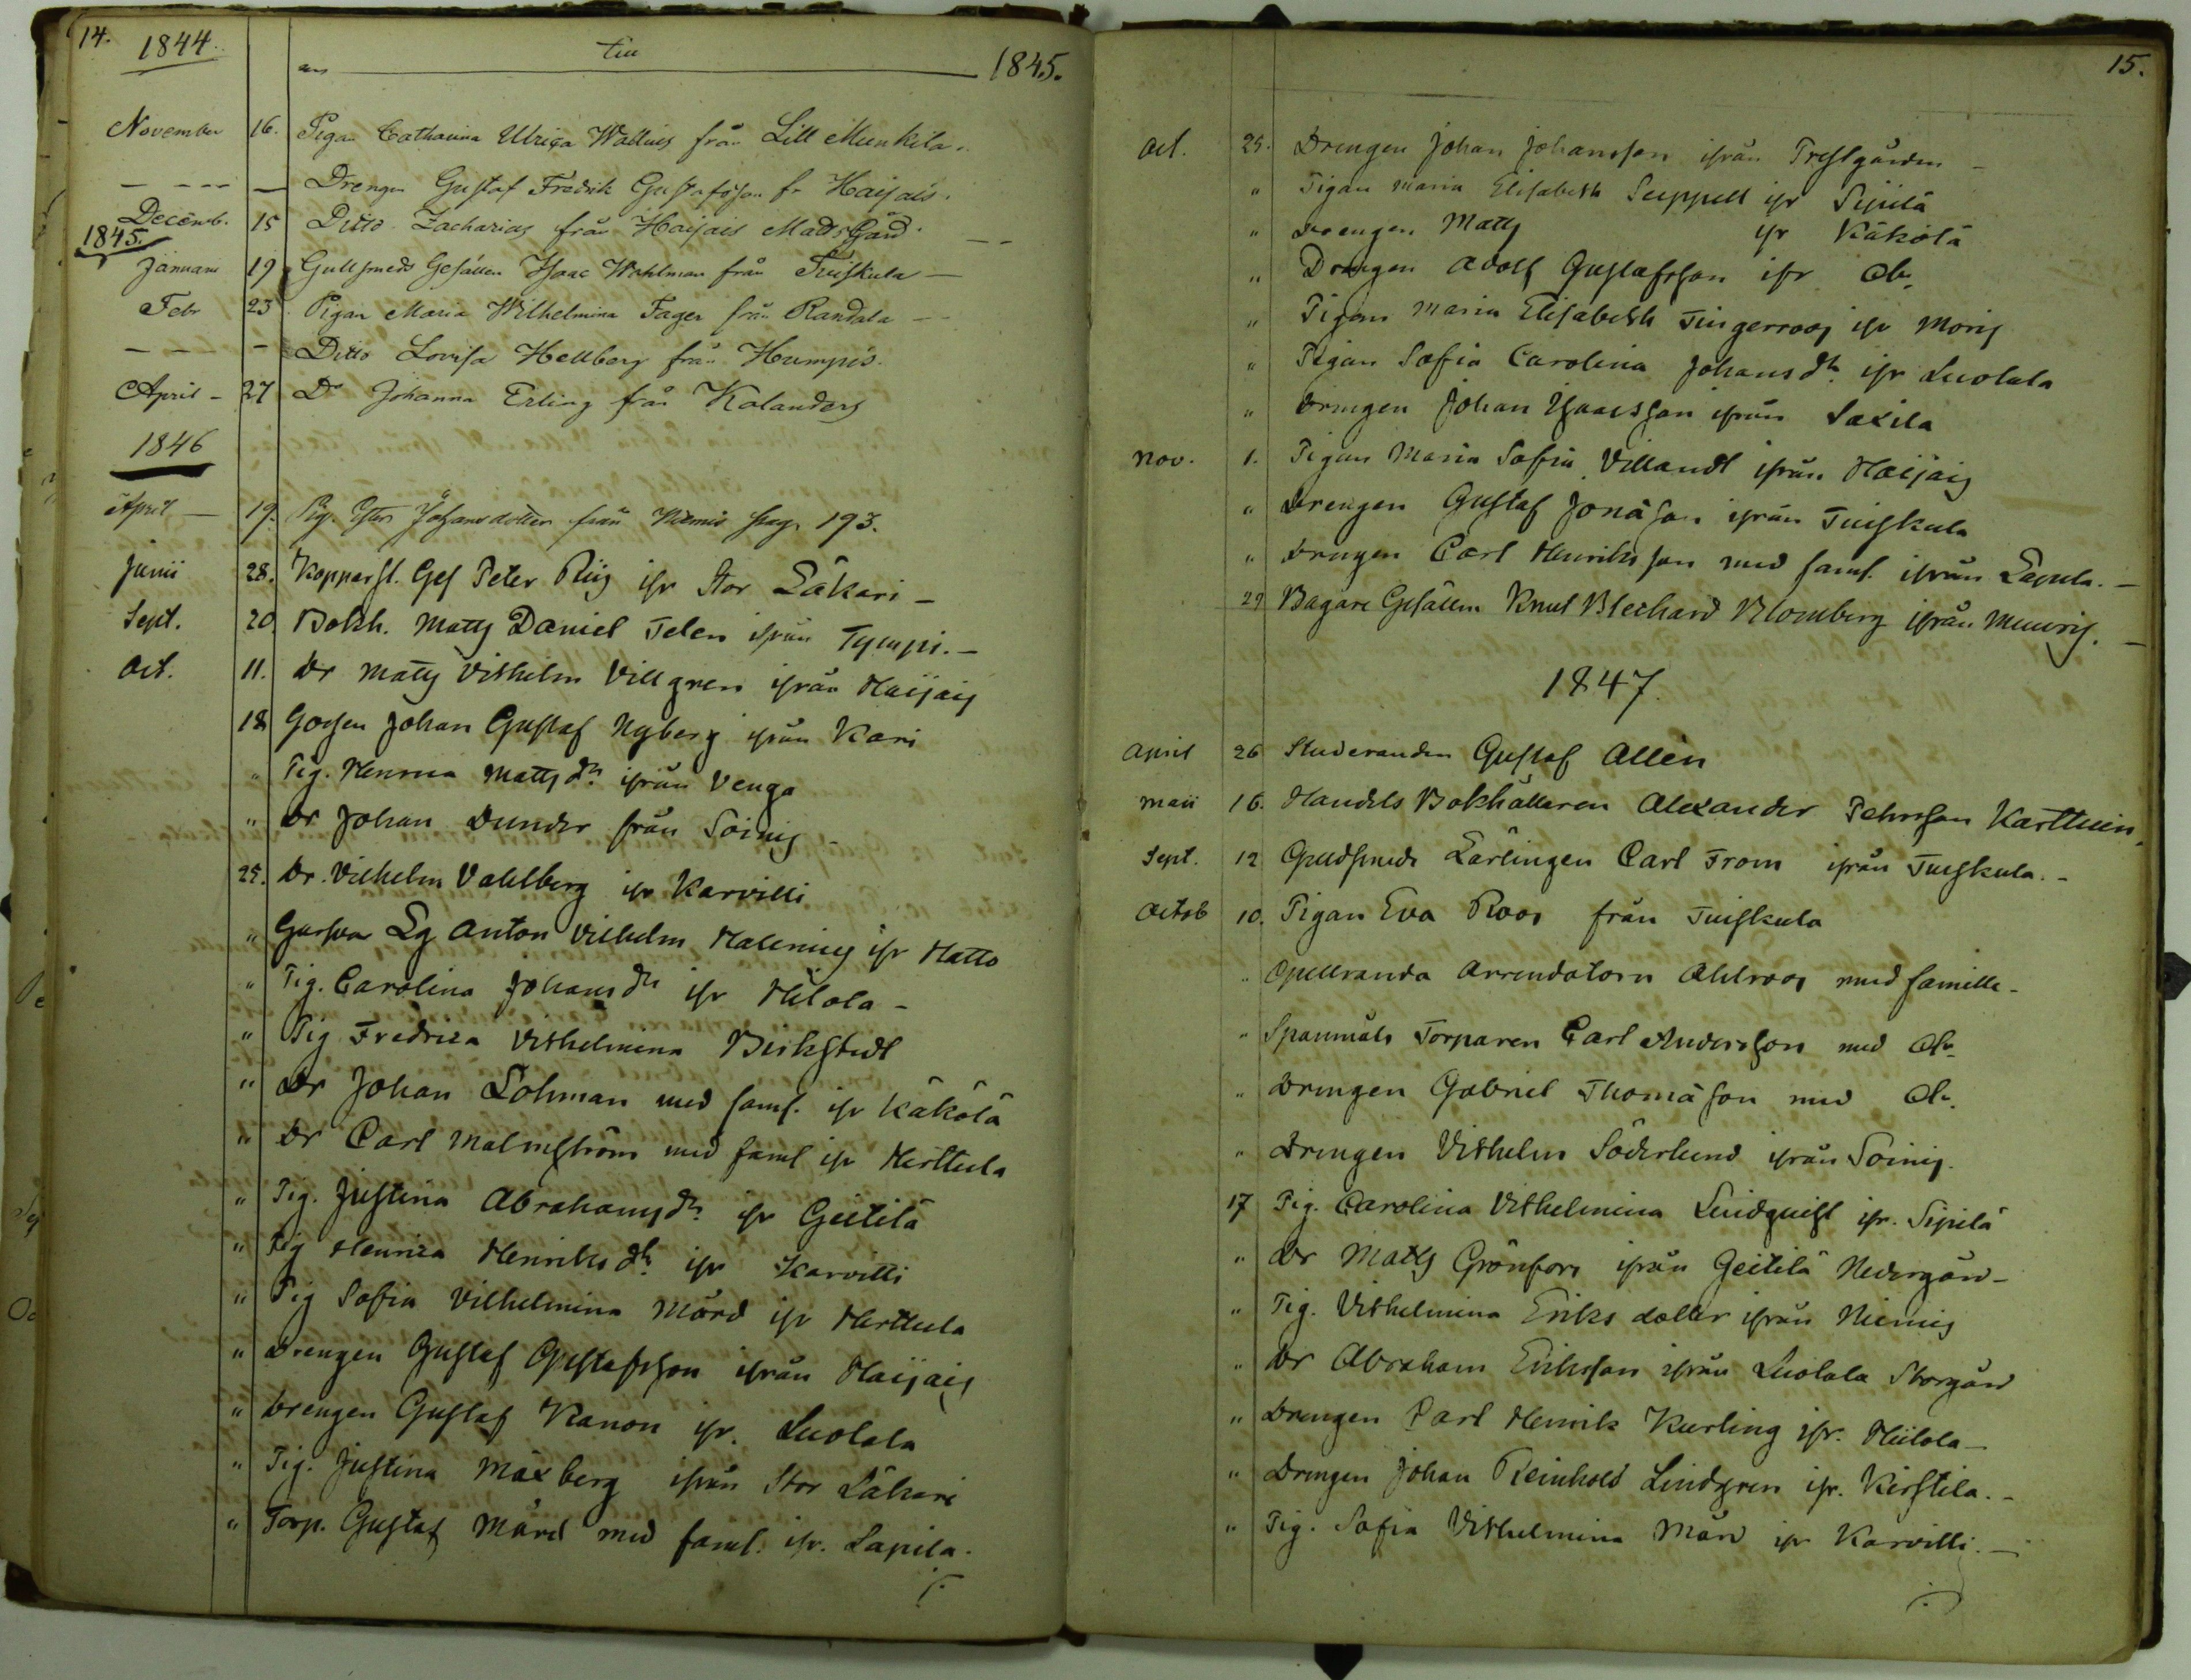 14. 1844. till 1845.
November 16. Pigan Catharina Ulrica Wallius från Lill Munkila.
— --- — Drengen Gustaf Fredrik Gustafsson fr Haijais.
Decemb. 15 Ditto Zacharias från Haijais Matts Gård. --
1845.
Januarii 19 Gullsmeds Gesällen Isaac Wahlman från Tuiskula —
Febr 23. Pigan Maria Wilhelmina Fager från Randala --
— — — - Ditto Lovisa Hellberg från Humpis.
April - 27 Do Johanna Erling från Kalanders
1846
April — 19. Pig. Johansdotter från Niemis pag. 193.
Junii 28. Kopparsl. Ges Peter Riis ifr Stor Läkäri —
Sept. 20. Bokh. Matts Daniel Telen ifrån Tympi. —
Oct. 11. Dr Matts Vilhelm Villgren ifrån Haijais
18 Gossen Johan Gustaf Nyberg ifrån Kari
" Pig. Henrica Mattsdr ifrån Venga
" Dr Johan Dunder från Soinis -
25. Dr. Vilhelm Vahlberg ifr Karvilli
" Garfva Lg Anton Vilhelm Halenius ifr Hatto
" Pig. Carolina Johansdr ifr Hilola -
" Pig Fredrica Vilhelmina Birkstedt
" Dr Johan Lohman med famf. ifr Käkölä
" Dr Carl Malmström med famf ifr Hertula
" Pig. Justina Abrahamsdr ifr Geitilä
" Pig Henrica Henriksdr ifr Karvilli
" Pig Sofia Vilhelmina Mård ifr Herttula
" Drengen Gustaf Gustafsson ifrån Haijais
" Drengen Gustaf Kanon ifr. Luolala
" Pig. Justina Maxberg ifrån Stor Läkäri
" Torp. Gustaf Mård med famf. ifr. Lapila.
15.
Oct. 25. Drengen Johan Johansson ifrån Prestgården —
" Pigan Maria Elisabeth Seippell ifr Sipilä
" Drengen Matts ifr Käkölä
" Drengen Adolf Gustafsson ifr do
" Pigan Maria Elisabeth Fingerroos ifr Moris
" Pigan Sofia Carolina Johansdr ifr Luolala
" Drengen Johan Isacsson ifrån Saxila
Nov. 1. Pigan Maria Sofia Villandt ifrån Haijais
" Drengen Gustaf Jonasson ifrån Tuiskula
" Drengen Carl Henriksson med famf. ifrån Lapila. —
29 Bagare Gesällen Knut Blechard Blomberg ifrån Muuris. —
1847.
April 26 Studeranden Gustaf Allén
Maii 16. Handels Bokhållaren Alexander Pehrsson Karttuin.
Sept. 12 Guldsmeds Lärlingen Carl From ifrån Tuiskula. -
Octob 10. Pigan Eva Roos från Tuiskula
" Gullranda Arrendatorn Ahlroos med famille -
" Spanmåls Torparen Carl Andersson med do
" Drengen Gabriel Thomasson med do
" Drengen Vilhelm Söderlund ifrån Soinis.
17 Pig. Carolina Vilhelmina Lindquist ifr. Sipilä
" Dr Matts Grönfors ifrån Geitilä Nedergård —
" Pig. Vilhelmina Eriks dotter ifrån Niemis
" Dr Abraham Eriksson ifrån Luolala Storgård
" Drengen Carl Henrik Kurling ifr. Hiilola —
" Drengen Johan Reinhold Lindgren ifr. Kirstila. -
" Pig. Sofia Vilhelmina Mård ifr Karvilli. —